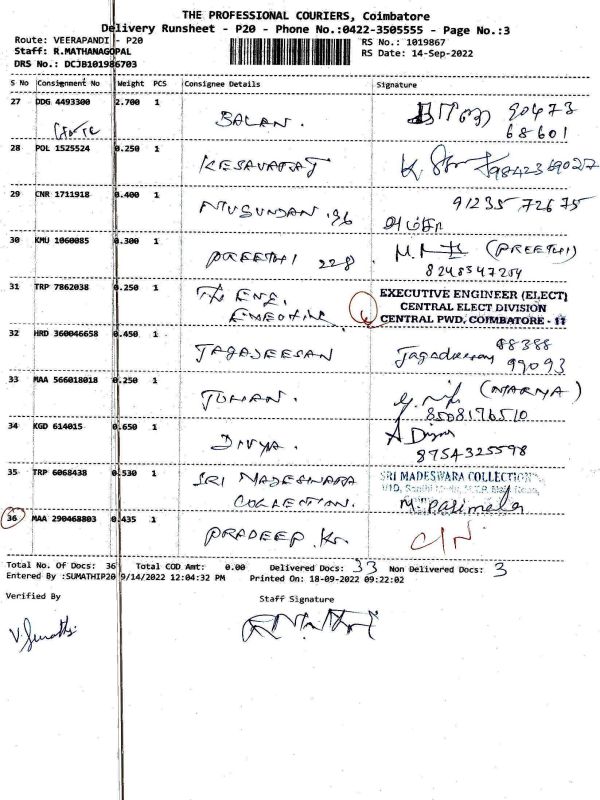 THE PROFESSIONAL COURIERS, Coimbatore
Delivery Runsheet - P20 - Phone No.:0422-3505555 - Page No.:3
Route: VEERAPANDI - P20
RS No.: 1019867
Staff: R.MATHANAGOPAL
RS Date: 14-Sep-2022
DRS No.: DCJB101986703
S No Consignment No Weight PCS Consignee Details Signature
27 DDG 4493300 2.700 1 BALAN. 90473
68601
28 POL 1525524 0.250 1 KESAVARAJ
29 CNR 1711918 0.400 1 96 91235 72675
30 KMU 1060085 0.300 1 PREETHI 228 (PREETHI)
8248547254
31 TRP 7862038 0.250 1 EXECUTIVE ENGINEER (ELECT)
CENTRAL ELECT DIVISION
CENTRAL PWD, COIMBATORE - 11
32 HRD 360046658 0.450 1 JAGAJEESAN 88388
99093
33 MAA 566018018 0.250 1
8508176510
34 KGD 614015 0.650 1 DIVYA.
8754325598
35 TRP 6068438 0.530 1 SRI MADESWARA SRI MADESWARA COLLECTION
COLLECTION. M. Parimala
36 MAA 290468803 0.435 1 PRADEEP. Kr. C/N
Total No. Of Docs: 36 Total COD Amt: 0.00 Delivered Docs: 33 Non Delivered Docs: 3
Entered By :SUMATHIP20 9/14/2022 12:04:32 PM Printed On: 18-09-2022 09:22:02
Verified By Staff Signature
V. Sumathi